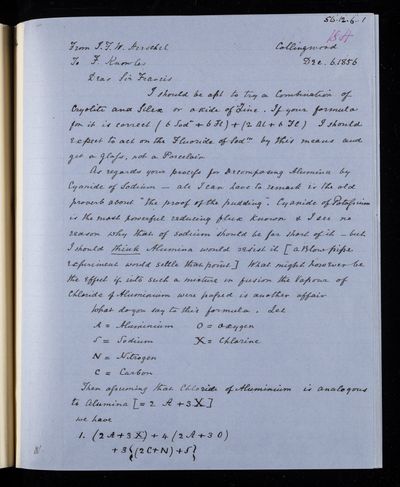 56·12·6·1
From J.F.W. Herschel Collingwood
To F. Knowles Dec. 6. 1856
Dear Sir Francis
I should be apt to try a Combination of
Cryolite and Silex or oxide of Zinc. If your formula
for it is correct (6 Sod^m + 6 Fl) + (2 Al + 6 Fl) I should
expect to act on the Fluoride of Sod^m by this means and
get a glass, not a Porcelain
As regards your process for Decomposing Alumina by
Cyanide of Sodium — all I can have to remark is the old
proverb about "the proof of the pudding". Cyanide of Potassium
is the most powerful reducing flux known & I see no
reason why that of sodium should be far short of it — but
I should think Alumina would resist it [a Blow pipe
experiment would settle that point] What might however be
the effect if into such a mixture in fusion the vapour of
Chloride of Aluminium were passed is another affair
What do you say to this formula. Let
A = Aluminium O = oxygen
S = Sodium X = Chlorine
N = Nitrogen
C = Carbon
Then assuming that Chloride of Aluminium is analogous
to Alumina [= 2 A + 3 X]
we have
1. (2 A + 3 X) + 4 (2 A + 3 O)
+ 3 {(2C + N) + S}